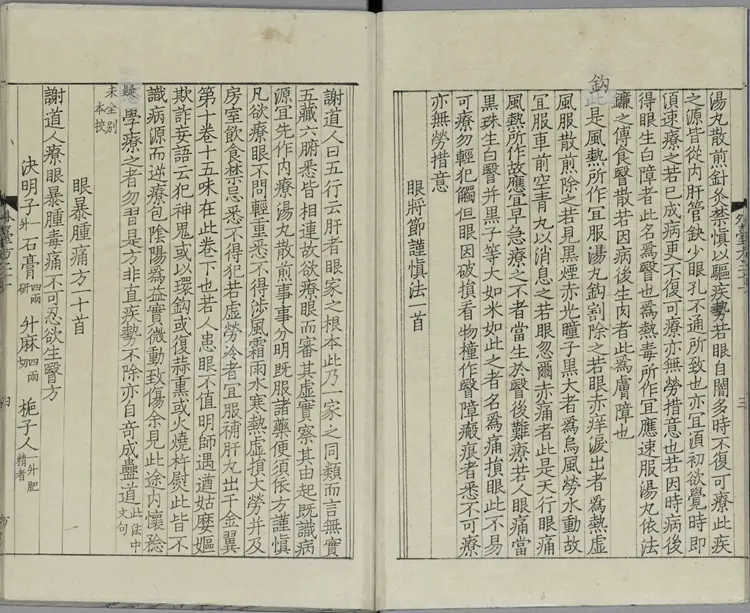 湯丸散煎針灸禁慎以驅疾勢若眼自闇多時不復可療此疾
之源皆從內肝管缺少眼孔不通所致也亦宜湏初欲覺時即
須速療之若已成病更不復可療亦無勞措意也若因時病後
得眼生白障者此名為翳也為熱毒所作宜應速服湯丸依法
鐮之傅食翳散若因病後生肉者此為膚障也
鈎
此是風熱所作宜服湯丸鈎割除之若眼赤痒淚出者為熱虛
風服散煎除之若見黑煙赤光瞳子黑大者為烏風勞水動故
宜服車前空青丸以消息之若眼忽爾赤痛者此是天行眼痛
風熱所作故應宜早急療之不者當生於翳後難療若人眼痛當
黑珠生白翳并黒子等大如米如此之者名為痛損眼此不易
可療勿輕犯觸但眼因破損看物撞作翳障瘢痕者悉不可療
亦無勞措意
眼將節謹慎法一首
謝道人曰五行云肝者眼家之根本此乃一家之同類而言無實
五藏六腑悉皆相連故欲療眼而審其虛實察其由起既識病
源宜先作內療湯丸散煎事事分明既服諸藥便須依方謹慎
凡欲療眼不問輕重悉不得涉風霜雨水寒熱虛損大勞并及
房室飲食禁忌悉不得犯若虛勞冷者宜服補肝丸出千金翼
第十卷十五味在此卷下也若人患眼不值明師遇遭姑麼嫗
欺詐妄語云犯神鬼或以環鈎或復蒜熏或火燒杵慰此皆不
識病源而逆療包陰陽為益實微動致傷余見此途內懷
學療之者勿習是方非直疾勢不除亦自奇成蠱道此法中文句
未全別本挍
眼暴腫痛方一十首
謝道人療眼暴腫毒痛不可忍欲生翳方
決明子一升 石膏四兩研 升麻四兩切 梔子人一升肥精者